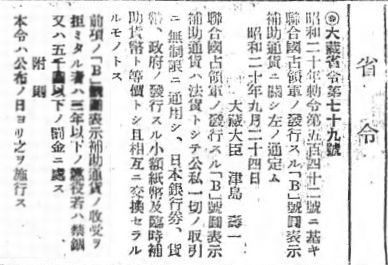 省令
◎大藏省令第七十九號
昭和二十年勅令第五百四十二號ニ基キ
聯合國占領軍ノ發行スル「B」號圓表示
補助通貨ニ關シ左ノ通定ム
昭和二十年九月二十四日
大藏大臣 津島 壽一
聯合國占領軍ノ發行スル「B」號圓表示
補助通貨ハ法貨トシテ公私一切ノ取引
ニ無制限ニ通用シ、日本銀行券、貨
幣、政府ノ發行スル小額紙幣及臨時補
助貨幣ト等價トシ且相互ニ交換セラル
ルモノトス
前項ノ「B」號圓表示補助通貨ノ收受ヲ
拒ミタル者ハ三年以下ノ懲役若ハ禁錮
又ハ五千圓以下ノ罰金ニ處ス
附則
本令ハ公布ノ日ヨリ之ヲ施行ス